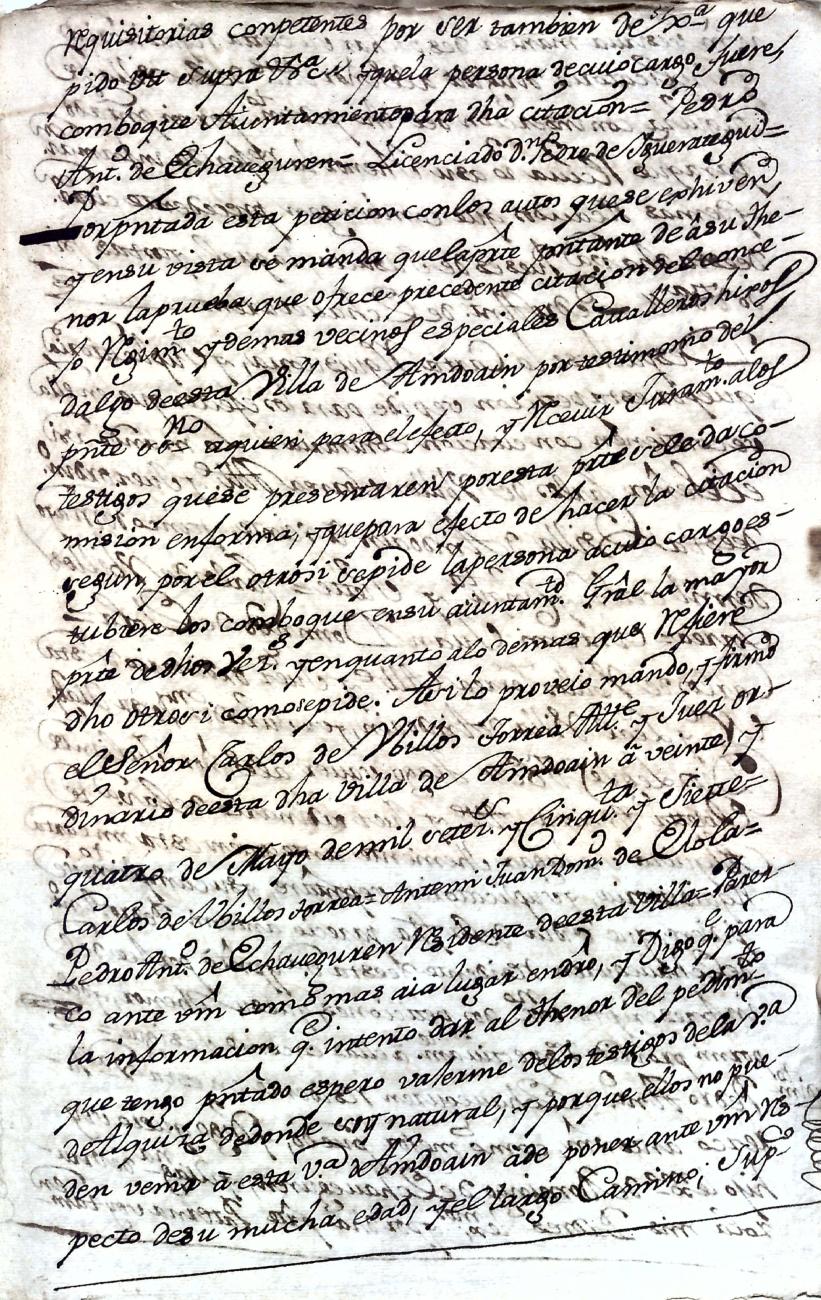 requisitorias conpetentes por ser tambien de Jxª que
pido Ut supra &ª y que la persona de cuio cargo fuere,
comboque Aiuntamiento para dha citacion= Pedro
Antº. de Echaveguren= Licenciado Dn. Pedro de
Por pntada esta peticion con los autos que se exhiven
y en su vista se manda que la prte pntante de â su the-
nor la prueba que ofrece precedente citacion del conce-
jo Rximto y demas vecinos especiales Cavalleros hixos
dalgo de esta Villa de Amdoain por testimonio del
pnte ssno aquien para el efecto, y Recivir Juramto. alos
testigos que se presentaren por esta prte se le da co-
mision en forma, y que para efecto de hacer la citacion
segun, por el otrosi se pide la persona a cuio cargo es-
tubiere los comboque en su aiuntamto. Grâl la mayor
prte de dhos Vezs. y en quanto alo demas que Refiere
dho otrosi como se pide. Asi lo proveio mando, y firmo
el Señor Carlos de Ubillos Jorrea Alle y Juez or-
dinario de esta dha Villa de Amdoain â veinte, y
quatro de Mayo de mil setezs. y Cinquta. y Siette=
Carlos de Ubillos Jorrea= Antemi Juan Domo. de Elola=
Pedro Antº. de Echaveguren Rsidente de esta Villa= Parez-
co ante vm̂ como mas aia lugar en drô, y Digo qe. para
la informacion qe. intento dar al thenor del pedimto
que tengo pntado espero valerme delos testigos dela vª
de Alquiza de donde soy natural, y porque ellos no pue-
den venir â esta vª de Amdoain âde poner ante vm̂ Rs-
pecto de su mucha edad, y el largo Camino; Supco